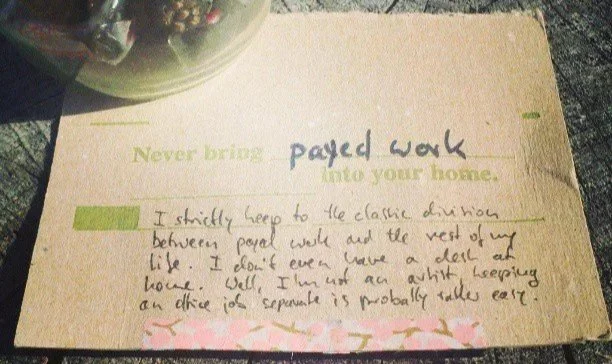 Never bring payed work
into your home.
I strictly keep to the classic division
between payed work and the rest of my
life. I don't even have a desk at
home. Well, I'm not an artist, keeping
an office job separate is probably rather easy.